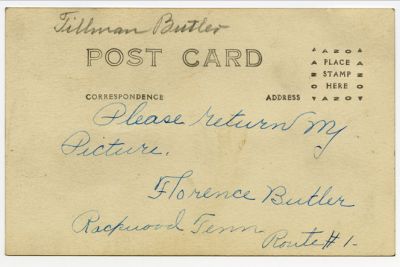 Tillman Butler
POST CARD
AZO
PLACE
STAMP
HERE
AZO
CORRESPONDENCE ADDRESS
Please return my
Picture.
Florence Butler
Rockwood Tenn
Route #1-